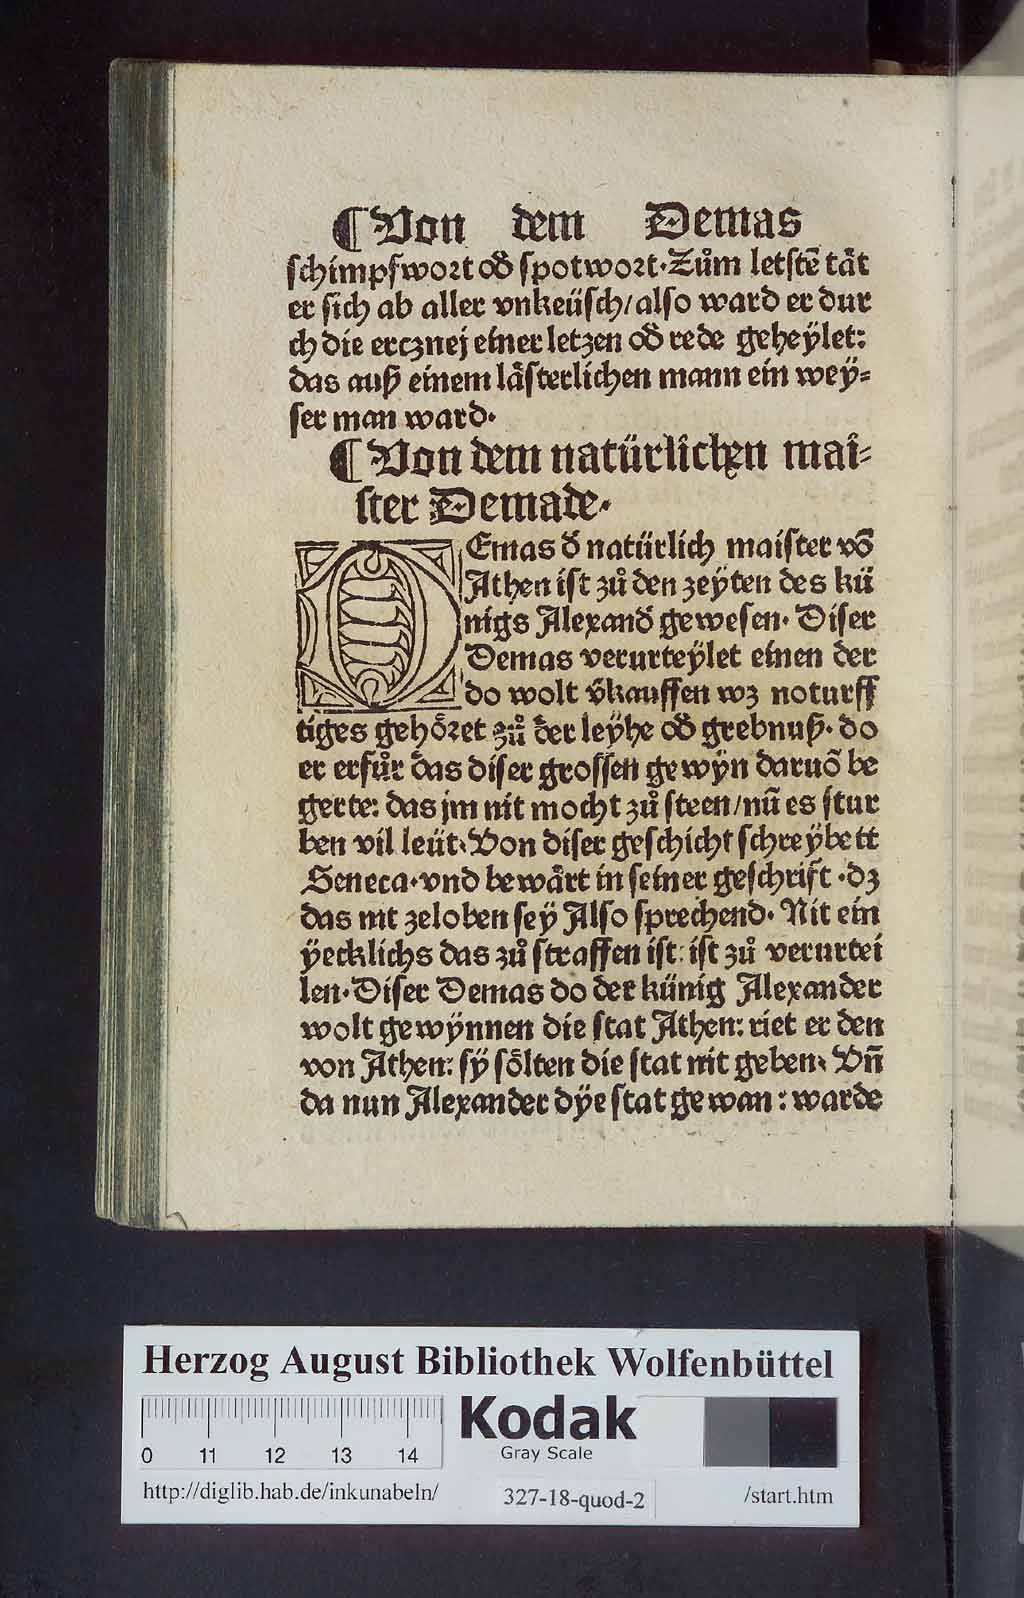 ¶ Von dem Demas
schimpfwort oď spotwort. Zům letstē tät
er sich ab aller vnkeüsch/ also ward er dur
ch die ercznej einer letzen oď rede geheÿlet:
das auß einem lästerlichen mann ein weÿ=
ser man ward.
¶ Von dem natürlichen mai=
ster Demade.
DEmas ď natürlich maister võ
Athen ist zů den zeÿten des kü
nigs Alexanď gewesen. Diser
Demas verurteÿlet einen der
do wolt v̄kauffen wz noturff
tiges gehöret zů der leÿhe oď grebnuß. do
er erfůr das diser grossen gewÿn daruõ be
gerte: das jm nit mocht zů steen/ nū es stur
ben vil leüt. Von diser geschicht schreÿbett
Seneca. vnd bewärt in seiner geschrift. dz
das nit zeloben seÿ Also sprechend. Nit ein
ÿecklichs das zů straffen ist: ist zů verurtei
len. Diser Demas do der künig Alexander
wolt gewÿnnen die stat Athen: riet er den
von Athen: sÿ sölten die stat nit geben. Vn̄
da nun Alexander dÿe stat gewan: warde
Herzog August Bibliothek Wolfenbüttel
0 11 12 13 14
Kodak
Gray Scale
http://diglib.hab.de/inkunabeln/ 327-18-quod-2 /start.htm